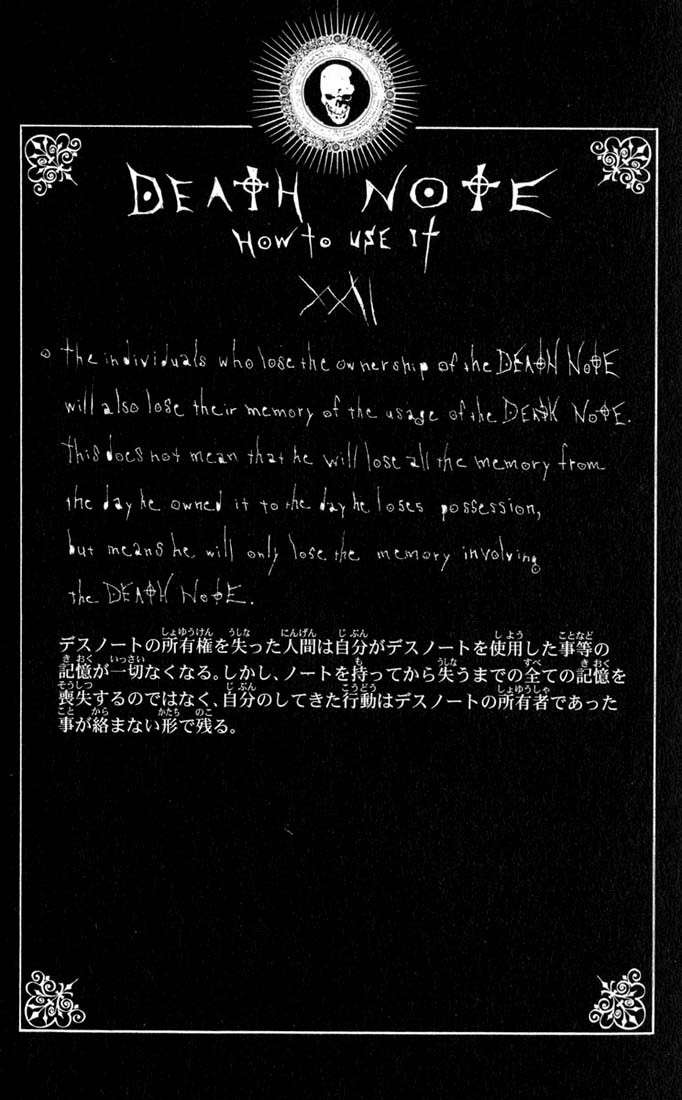 DEATH NOTE
HOW TO USE IT
XXII
○ The individuals who lose the ownership of the DEATH NOTE
will also lose their memory of the usage of the DEATH NOTE.
This does not mean that he will lose all the memory from
the day he owned it to the day he loses possession,
but means he will only lose the memory involving
the DEATH NOTE.
しょゆうけん うしな にんげん じぶん しよう ことなど
デスノートの所有権を失った人間は自分がデスノートを使用した事等の
きおく いっさい も うしな すべ きおく
記憶が一切なくなる。しかし、ノートを持ってから失うまでの全ての記憶を
そうしつ じぶん こうどう しょゆうしゃ
喪失するのではなく、自分のしてきた行動はデスノートの所有者であった
こと から かたち のこ
事が絡まない形で残る。